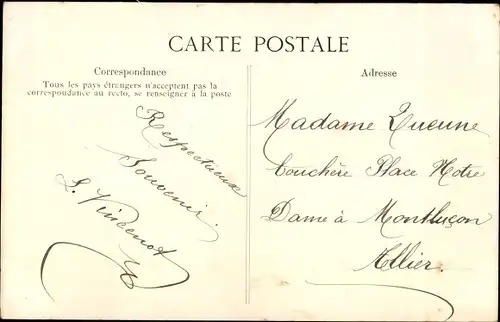 CARTE POSTALE
Correspondance
Tous les pays étrangers n'acceptent pas la
correspondance au recto, se renseigner à la poste
Respectueux
Souvenir.
L. Vincenot
Adresse
Madame Queune
bouchère Place Notre
Dame à Montluçon
Allier.